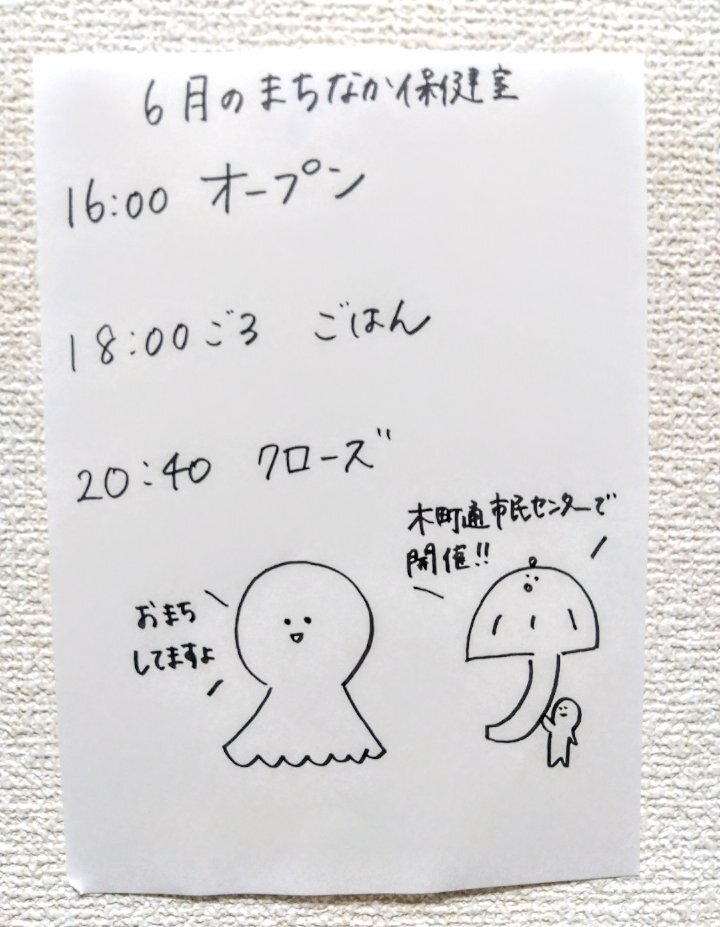 6月のまちなか保健室
16:00 オープン
18:00ごろ ごはん
20:40 クローズ
木町通市民センターで
開催!!
おまち
してますよ